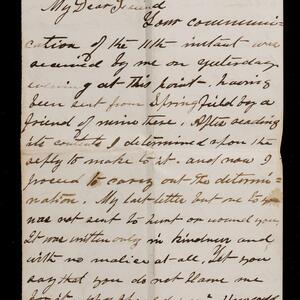 My Dear Friend
Your communi-
cation of the 11th instant was
received by me on yesterday
evening at this point, having
been sent from Springfield by a
friend of mine there. After reading
its contents I determined upon the
reply to make to it. and now I
proceed to carry out the determi-
nation. My last letter but one to you
was not sent to hurt or wound you,
It was written only in kindness and
with no malice at all. Yet you
say that you do not blame me
for it